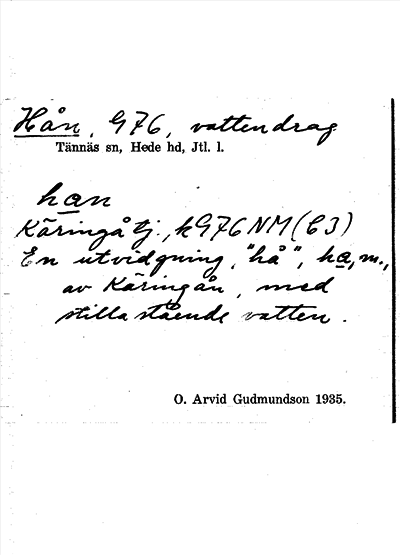 Hån, 976, vattendrag
Tännäs sn, Hede hd, Jtl. l.
han
Käringåtj., k976NM(C3)
En utvidgning, "hå", ha, m.,
av Käringån, med
stillastående vatten.
O. Arvid Gudmundson 1935.